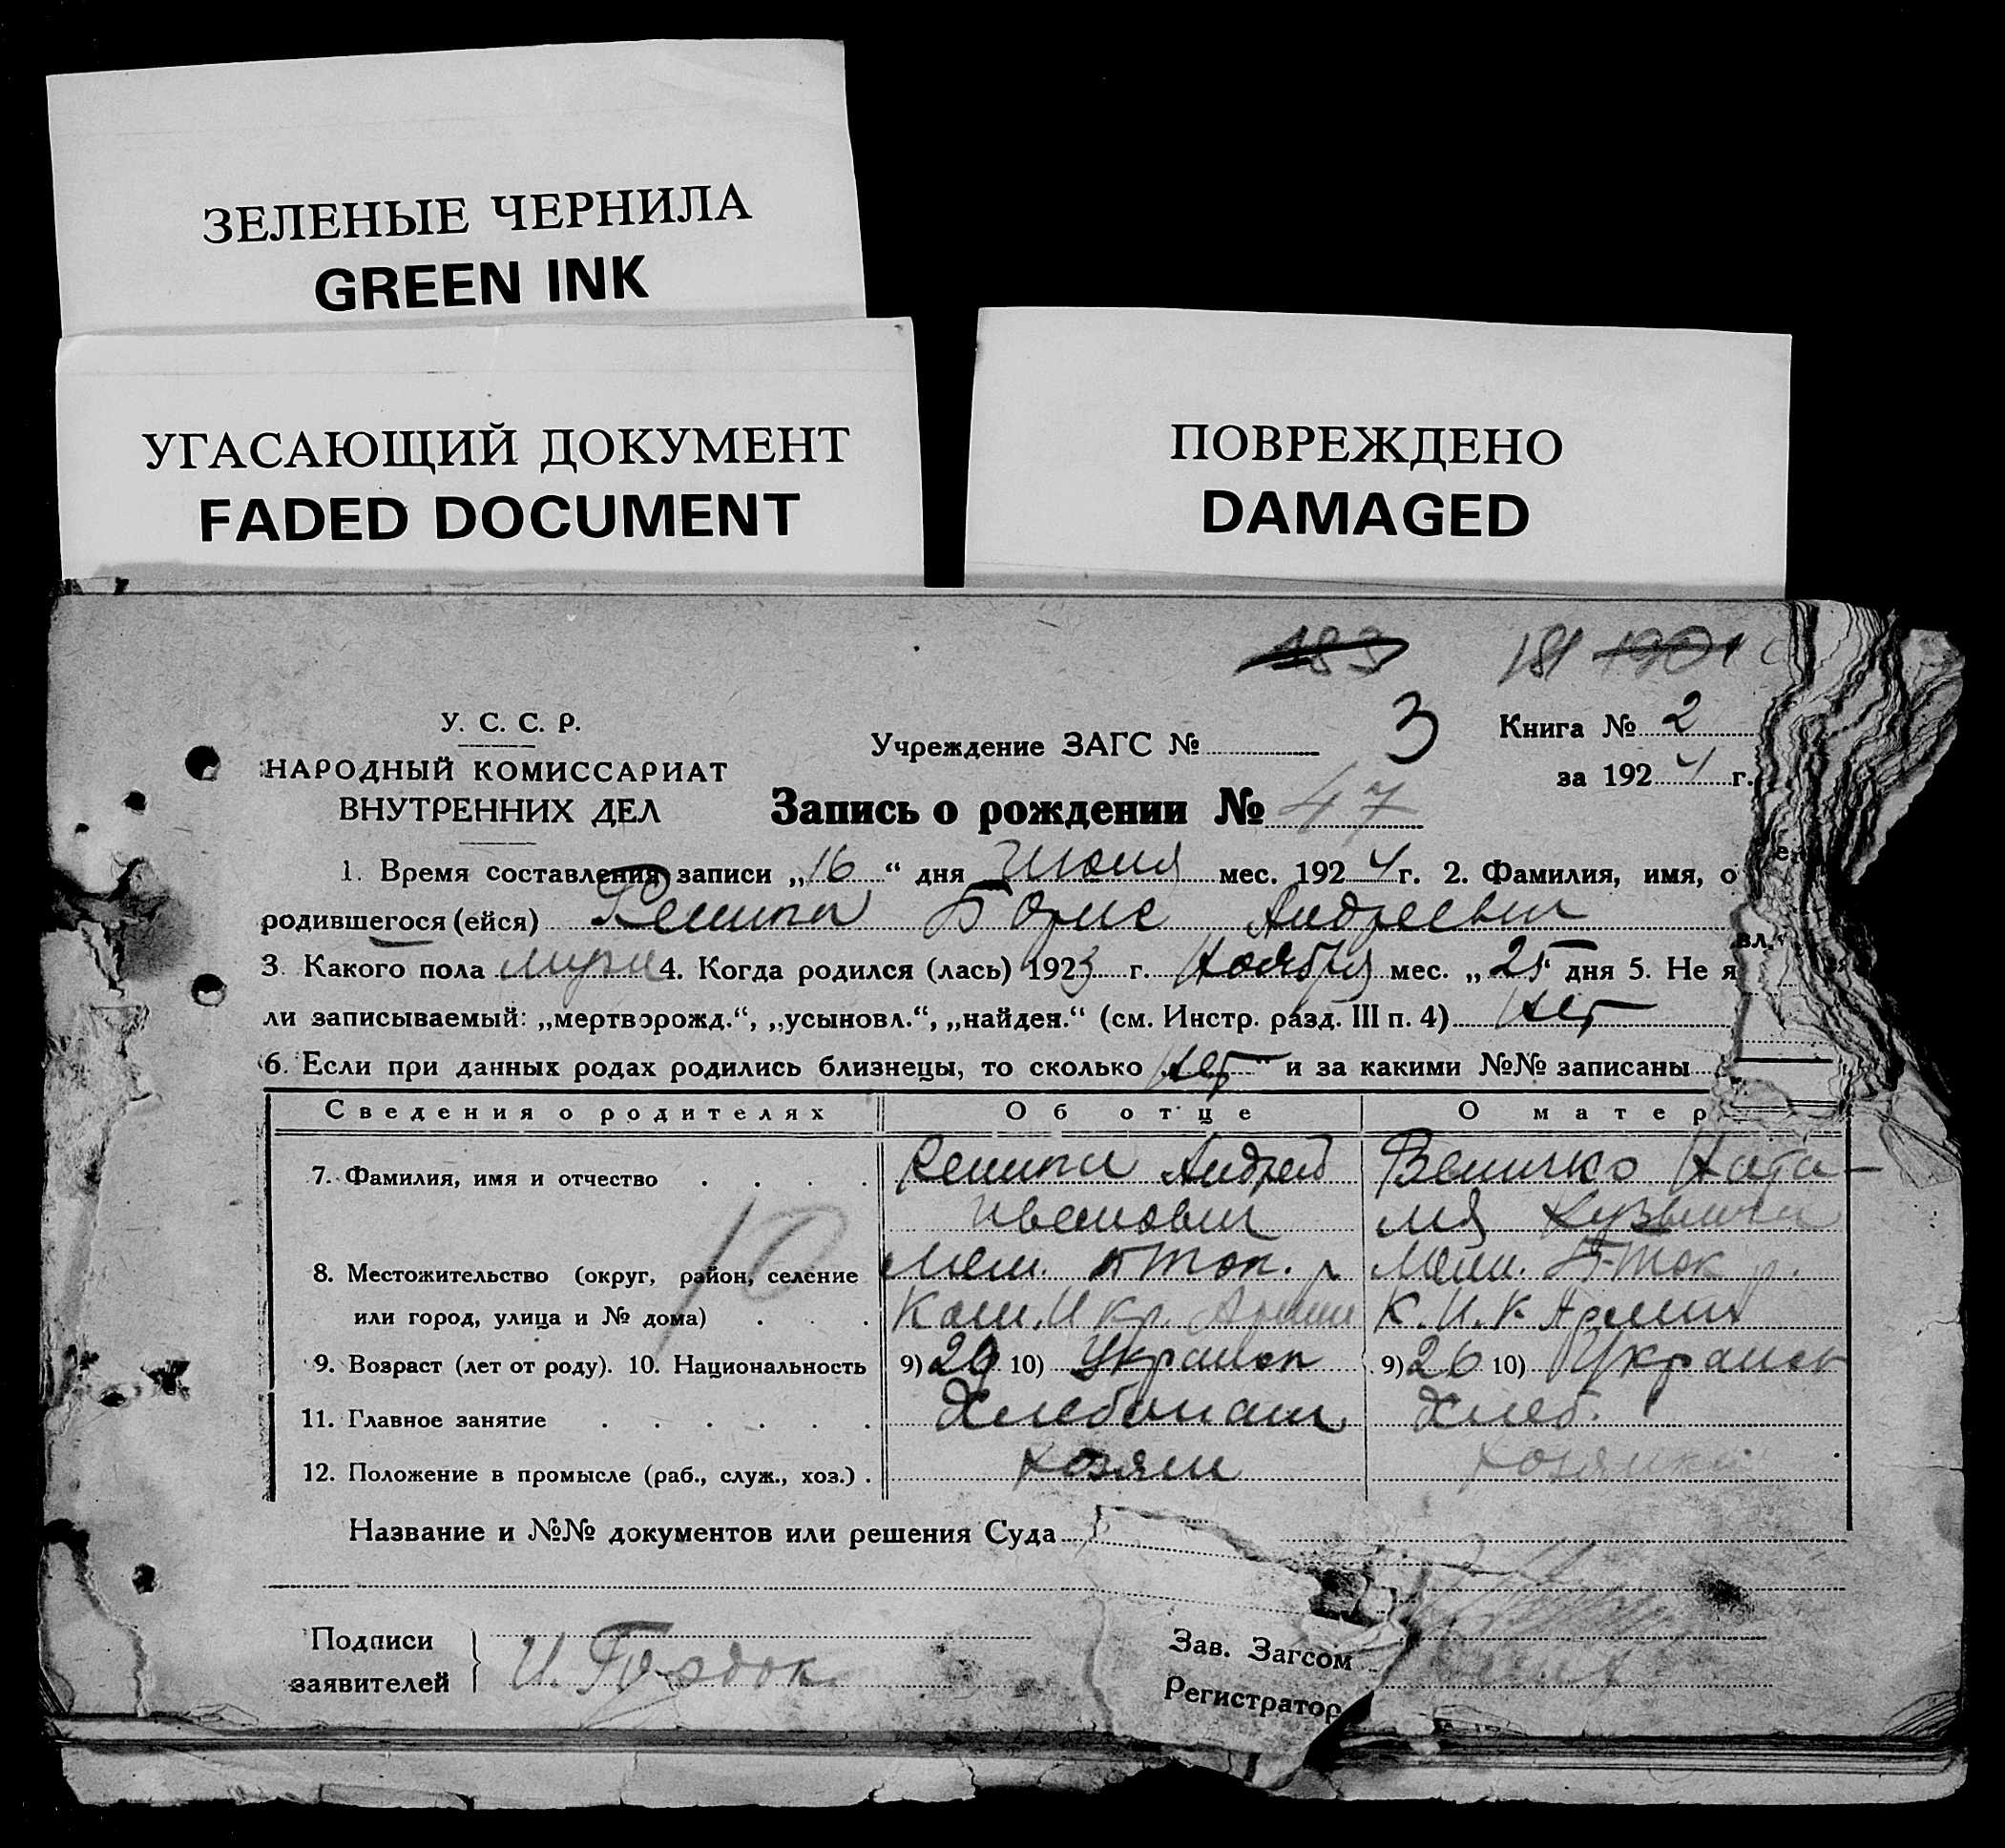 ЗЕЛЕНЫЕ ЧЕРНИЛА
GREEN INK
УГАСАЮЩИЙ ДОКУМЕНТ
FADED DOCUMENT
ПОВРЕЖДЕНО
DAMAGED
183 181 1901
У. С. С. Р.
НАРОДНЫЙ КОМИССАРИАТ
ВНУТРЕННИХ ДЕЛ
Учреждение ЗАГС № 3
Книга № 2
за 1924 г.
Запись о рождении № 47
1. Время составления записи „16“ дня Июня мес. 1924 г. 2. Фамилия, имя, о
родившегося (ейся) Борис Андреевич
3. Какого пола 4. Когда родился (лась) 1923 г. Ноября мес. „25“ дня 5. Не я
вл.
ли записываемый: „мертворожд.“, „усыновл.“, „найден.“ (см. Инстр. разд. III п. 4) Нет
6. Если при данных родах родились близнецы, то сколько Нет и за какими №№ записаны
Сведения о родителях Об отце О матер
7. Фамилия, имя и отчество Андрей Ната-
Иванович лия
8. Местожительство (округ, район, селение Мел. Мели. Б-Ток р.
или город, улица и № дома) Ком. И Кр. Армии К. И. К. Армия
9. Возраст (лет от роду). 10. Национальность 9) 10) Украин 9) 26 10) Украин
11. Главное занятие Хлебопаш. Хлеб.
12. Положение в промысле (раб., служ., хоз.) хозяин хозяйка
10
Название и №№ документов или решения Суда
Подписи
заявителей
И. Гордок
Зав. Загсом
Регистратор